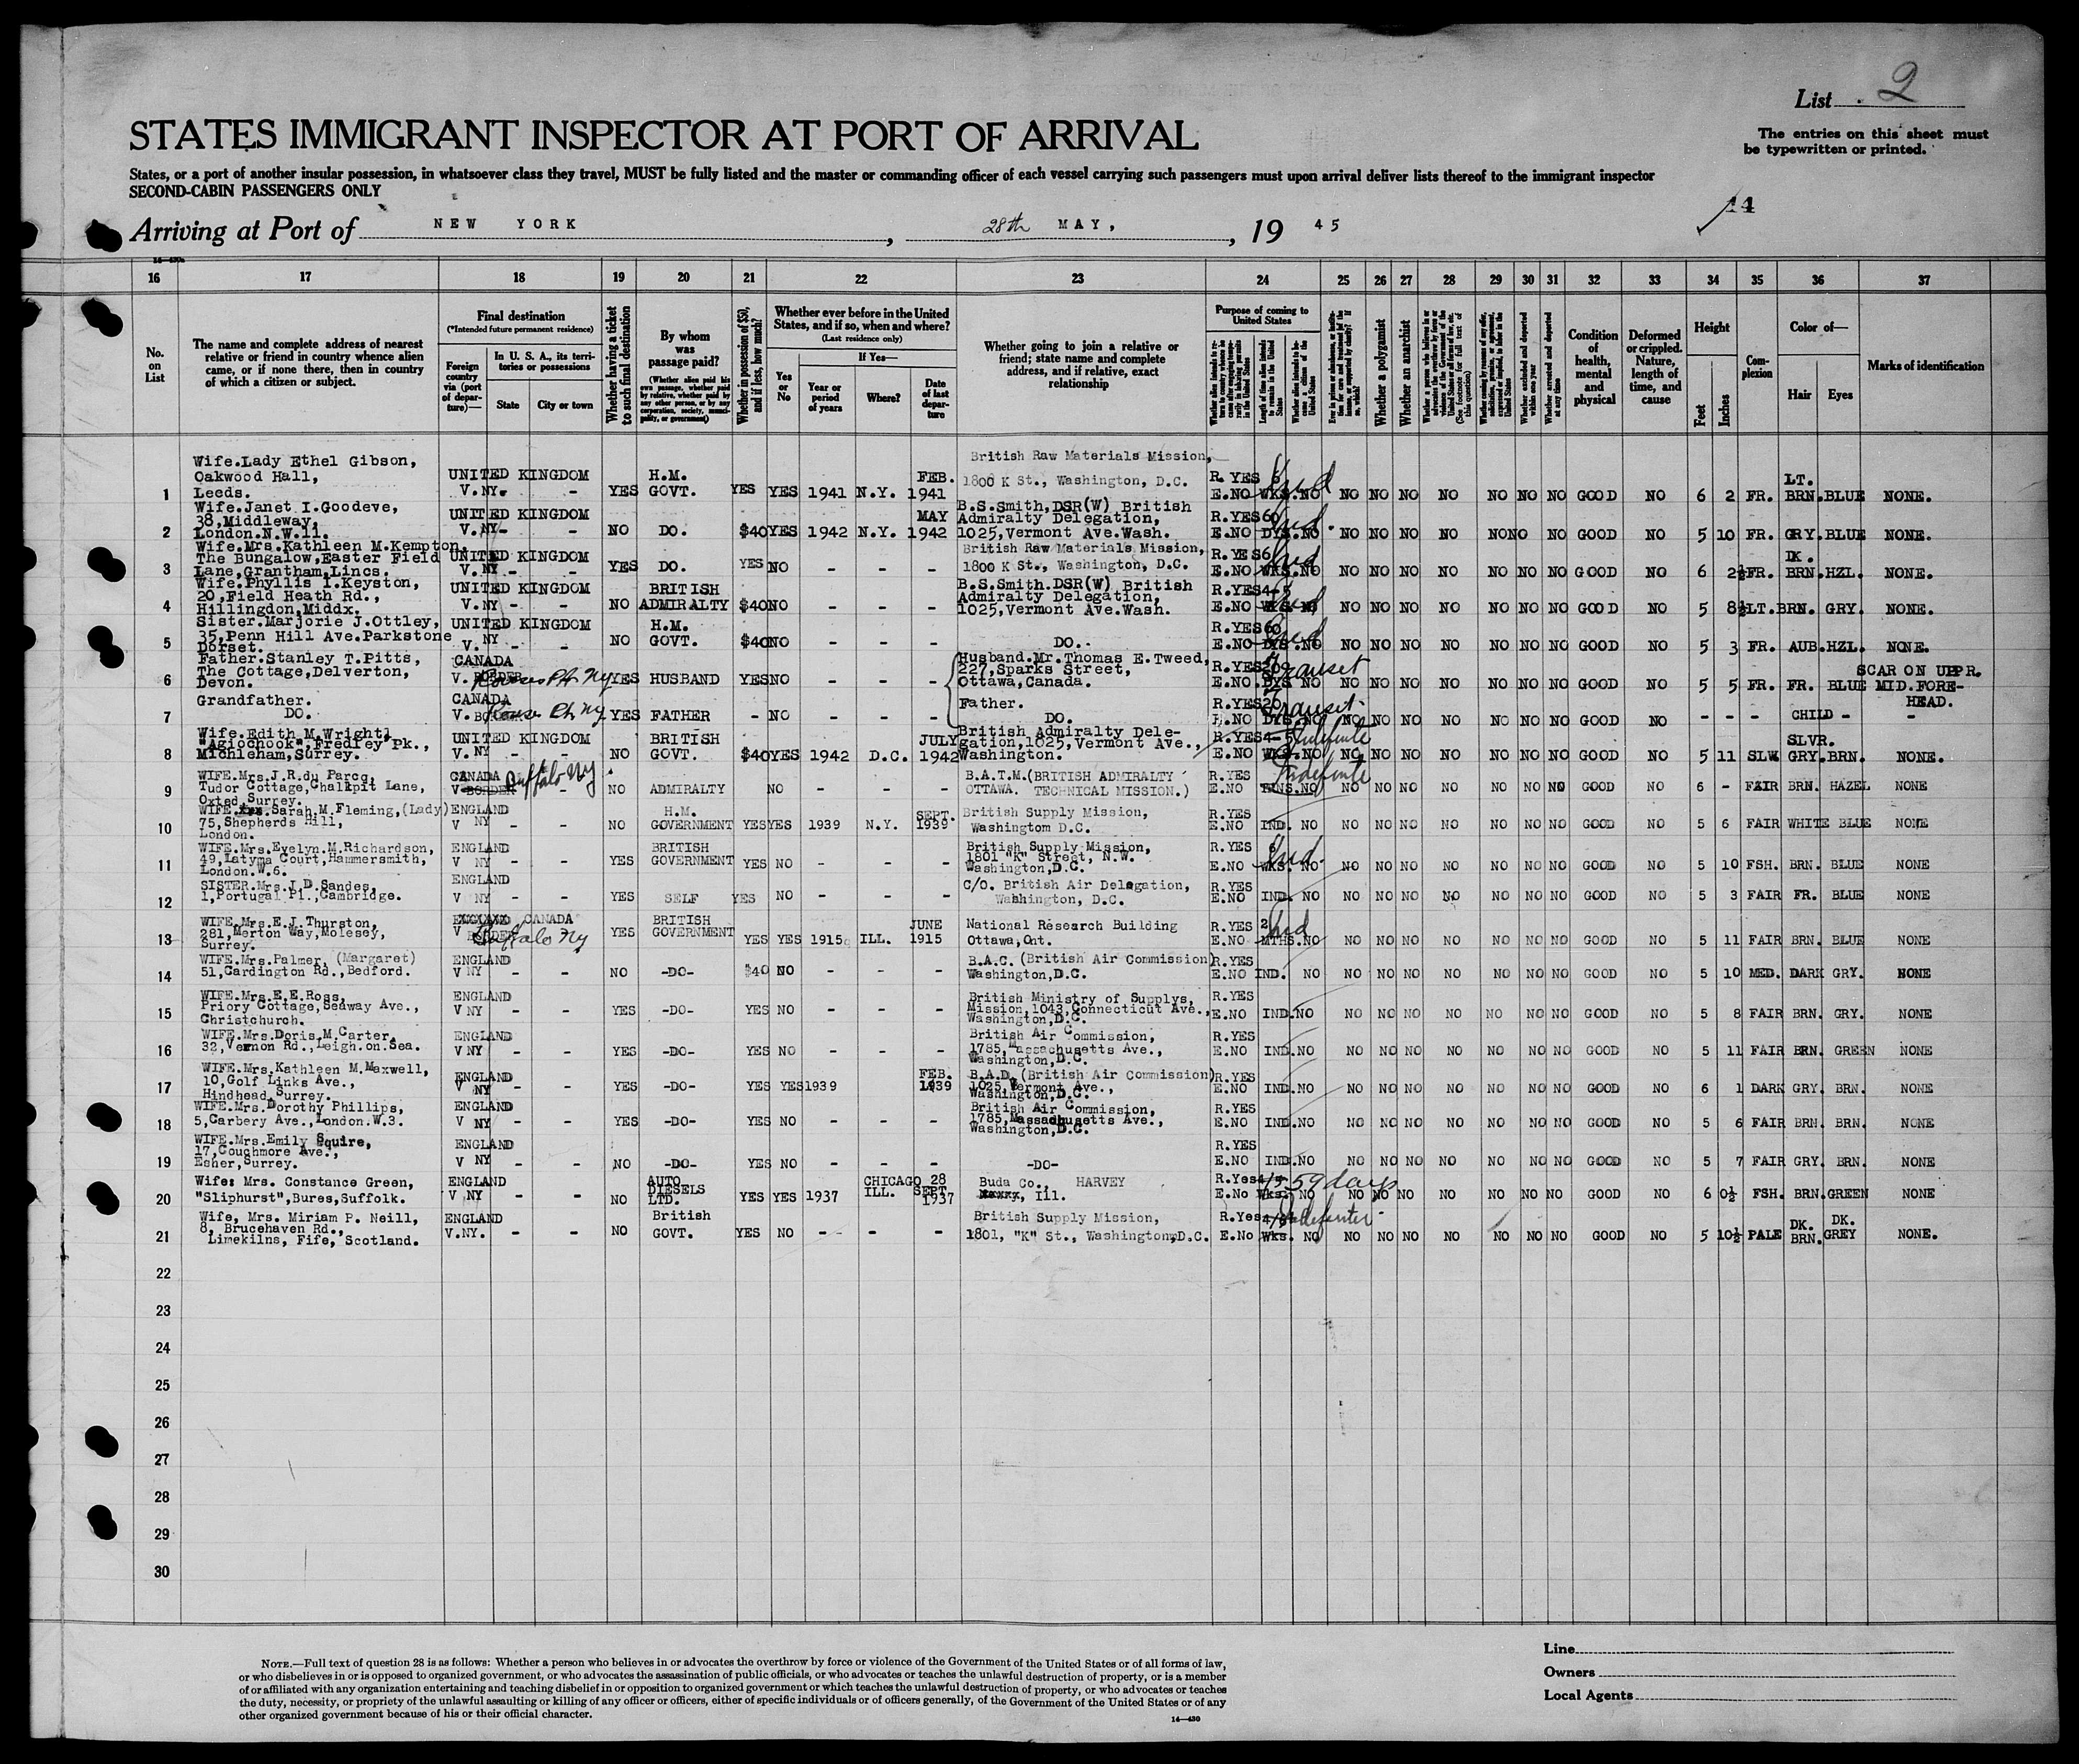 List 2
STATES IMMIGRANT INSPECTOR AT PORT OF ARRIVAL
The entries on this sheet must
be typewritten or printed.
States, or a port of another insular possession, in whatsoever class they travel, MUST be fully listed and the master or commanding officer of each vessel carrying such passengers must upon arrival deliver lists thereof to the immigrant inspector
SECOND-CABIN PASSENGERS ONLY
14
Arriving at Port of NEW YORK, 28th MAY, 1945
16 17 18 19 20 21 22 23 24 25 26 27 28 29 30 31 32 33 34 35 36 37
No. on List
The name and complete address of nearest relative or friend in country whence alien came, or if none there, then in country of which a citizen or subject.
Final destination
(*Intended future permanent residence)
Foreign country via (port of departure)—
In U. S. A., its territories or possessions
State
City or town
Whether having a ticket to such final destination
By whom was passage paid?
(Whether alien paid his own passage, whether paid by relative, whether paid by any other person, or by any corporation, society, municipality, or government)
Whether in possession of $50, and if less, how much?
Whether ever before in the United States, and if so, when and where?
(Last residence only)
Yes or No
If Yes—
Year or period of years
Where?
Date of last departure
Whether going to join a relative or friend; state name and complete address, and if relative, exact relationship
Purpose of coming to United States
Length of time alien intends to remain in the United States
Whether alien intends to become a citizen of the United States
Whether a polygamist
Whether an anarchist
Whether excluded and deported within one year
Whether arrested and deported at any time
Condition of health, mental and physical
Deformed or crippled. Nature, length of time, and cause
Height
Feet
Inches
Complexion
Color of—
Hair
Eyes
Marks of identification
1 Wife.Lady Ethel Gibson, Oakwood Hall, Leeds. UNITED KINGDOM V. NY. - YES H.M. GOVT. YES YES 1941 N.Y. FEB. 1941 British Raw Materials Mission, 1800 K St., Washington, D.C. R.YES 6 E.NO WKS. NO Ind NO NO NO NO NO NO NO GOOD NO 6 2 FR. LT. BRN. BLUE NONE.
2 Wife.Janet I.Goodeve, 38,Middleway, London.N.W.11. UNITED KINGDOM V. NY - - NO DO. $40 YES 1942 N.Y. MAY 1942 B.S.Smith,DSR(W) British Admiralty Delegation, 1025,Vermont Ave.Wash. R.YES 60 E.NO DYS. NO Ind. NO NO NO NO NO NO NO GOOD NO 5 10 FR. GRY. BLUE NONE.
3 Wife.Mrs.Kathleen M.Kempton, The Bungalow,Easter Field Lane,Grantham,Lincs. UNITED KINGDOM V. NY - - YES DO. YES NO - - - British Raw Materials Mission, 1800 K St., Washington, D.C. R.YES 6 E.NO WKS. NO Ind NO NO NO NO NO NO NO GOOD NO 6 2½ FR. DK. BRN. HZL. NONE.
4 Wife.Phyllis I.Keyston, 20,Field Heath Rd., Hillingdon,Middx. UNITED KINGDOM V. NY - - NO BRITISH ADMIRALTY $40 NO - - - B.S.Smith.DSR(W) British Admiralty Delegation, 1025,Vermont Ave.Wash. R.YES 4-5 E.NO WKS. NO Ind NO NO NO NO NO NO NO GOOD NO 5 8½ LT. BRN. GRY. NONE.
5 Sister.Marjorie J.Ottley, 35,Penn Hill Ave.Parkstone Dorset. UNITED KINGDOM V. NY - - NO H.M. GOVT. $40 NO - - - DO. R.YES 60 E.NO DYS. NO Ind NO NO NO NO NO NO NO GOOD NO 5 3 FR. AUB. HZL. NONE.
6 Father.Stanley T.Pitts, The Cottage,Delverton, Devon. CANADA V. BORDER Rouses Pt. NY YES HUSBAND YES NO - - - Husband.Mr.Thomas E.Tweed, 227,Sparks Street, Ottawa,Canada. R.YES 20 E.NO DYS NO Transit NO NO NO NO NO NO NO GOOD NO 5 5 FR. FR. BLUE SCAR ON UPPR. MID.FOREHEAD.
7 Grandfather. DO. CANADA V. BORDER Rouses Pt NY YES FATHER - NO - - - Father. DO. R.YES 20 E.NO DYS. NO Transit. NO NO NO NO NO NO NO GOOD NO - - - CHILD - -
8 Wife.Edith M.Wright, "Agiochook",Fredley Pk., Michleham,Surrey. UNITED KINGDOM V. NY - - NO BRITISH GOVT. $40 YES 1942 D.C. JULY 1942 British Admiralty Delegation,1025,Vermont Ave., Washington. R.YES 4-5 E.NO WKS. NO Indefinite NO NO NO NO NO NO NO GOOD NO 5 11 SLW. SLVR. GRY. BRN. NONE.
9 WIFE.Mrs.J.R.du Parcq, Tudor Cottage,Chalkpit Lane, Oxted,Surrey. CANADA V BORDER Buffalo NY - NO ADMIRALTY NO - - - B.A.T.M.(BRITISH ADMIRALTY OTTAWA. TECHNICAL MISSION.) R.YES E.NO NO Indefinite NO NO NO NO NO NO NO GOOD NO 6 - FAIR BRN. HAZEL NONE
10 WIFE. Sarah.M.Fleming,(Lady) 75,Shepherds Hill, London. ENGLAND V NY - - NO H.M. GOVERNMENT YES YES 1939 N.Y. SEPT. 1939 British Supply Mission, Washingtom D.C. R.YES E.NO IND. NO NO NO NO NO NO NO NO GOOD NO 5 6 FAIR WHITE BLUE NONE
11 WIFE.Mrs.Evelyn.M.Richardson, 49,Latyma Court,Hammersmith, London.W.6. ENGLAND V NY - - YES BRITISH GOVERNMENT YES NO - - - British Supply Mission, 1801 "K" Street, N.W. Washington,D.C. R.YES 6 E.NO WKS. NO Ind. NO NO NO NO NO NO NO GOOD NO 5 10 FSH. BRN. BLUE NONE
12 SISTER.Mrs.J.D.Sandes, 1,Portugal Pl.,Cambridge. ENGLAND V NY - - YES SELF YES NO - - - C/O. British Air Delegation, Washington, D.C. R.YES E.NO IND. NO NO NO NO NO NO NO NO GOOD NO 5 3 FAIR FR. BLUE NONE
13 WIFE,Mrs.E.J.Thurston, 281,Merton Way,Molesey, Surrey. CANADA V BORDER Buffalo NY YES BRITISH GOVERNMENT YES YES 1915 ILL. JUNE 1915 National Research Building Ottawa,Ont. R.YES 2 E.NO MTHS. NO Ind NO NO NO NO NO NO NO GOOD NO 5 11 FAIR BRN. BLUE NONE
14 WIFE.Mrs.Palmer, (Margaret) 51,Cardington Rd.,Bedford. ENGLAND V NY - - NO -DO- $40 NO - - - B.A.C. (British Air Commission) Washington,D.C. R.YES E.NO IND. NO NO NO NO NO NO NO NO GOOD NO 5 10 MED. DARK GRY. NONE
15 WIFE.Mrs.E.E.Ross, Priory Cottage,Sedway Ave., Christchurch. ENGLAND V NY - - YES -DO- YES NO - - - British Ministry of Supplys, Mission,1043,Connecticut Ave., Washington,D.C. R.YES E.NO IND. NO NO NO NO NO NO NO NO GOOD NO 5 8 FAIR BRN. GRY. NONE
16 WIFE.Mrs.Doris.M.Carter, 32,Vernon Rd.,Leigh.on.Sea. ENGLAND V NY - - YES -DO- YES NO - - - British Air Commission, 1785,Massachusetts Ave., Washington,D.C. R.YES E.NO IND. NO NO NO NO NO NO NO NO GOOD NO 5 11 FAIR BRN. GREEN NONE
17 WIFE.Mrs.Kathleen M.Maxwell, 10,Golf Links Ave., Hindhead,Surrey. ENGLAND V NY - - YES -DO- YES YES 1939 FEB. 1939 B.A.D. (British Air Commission) 1025,Vermont Ave., Washington,D.C. R.YES E.NO IND. NO NO NO NO NO NO NO NO GOOD NO 6 1 DARK GRY. BRN. NONE
18 WIFE.Mrs.Dorothy Phillips, 5,Carbery Ave.,London.W.3. ENGLAND V NY - - YES -DO- YES NO - - - British Air Commission, 1785,Massachusetts Ave., Washington,D.C. R.YES E.NO IND. NO NO NO NO NO NO NO NO GOOD NO 5 6 FAIR BRN. BRN. NONE
19 WIFE.Mrs.Emily Squire, 17,Couchmore Ave., Esher,Surrey. ENGLAND V NY - - NO -DO- YES NO - - - -DO- R.YES E.NO IND. NO NO NO NO NO NO NO NO GOOD NO 5 7 FAIR GRY. BRN. NONE
20 Wife: Mrs. Constance Green, "Sliphurst",Bures,Suffolk. ENGLAND V NY - - NO AUTO DIESELS LTD. YES YES 1937 CHICAGO ILL. 28 SEPT. 1937 Buda Co., HARVEY Ill. R.Yes E.No Wks. NO 59 days NO NO NO NO NO NO NO GOOD NO 6 0½ FSH. BRN. GREEN NONE
21 Wife, Mrs. Miriam P. Neill, 8, Brucehaven Rd., Limekilns, Fife, Scotland. ENGLAND V.NY. - - NO British GOVT. YES NO - - - - British Supply Mission, 1801, "K" St., Washington,D.C. R.Yes E.No Wks. NO NO NO NO NO NO NO NO GOOD NO 5 10½ PALE DK. BRN. DK. GREY NONE.
22
23
24
25
26
27
28
29
30
NOTE.—Full text of question 28 is as follows: Whether a person who believes in or advocates the overthrow by force or violence of the Government of the United States or of all forms of law,
or who disbelieves in or is opposed to organized government, or who advocates the assassination of public officials, or who advocates or teaches the unlawful destruction of property, or is a member
of or affiliated with any organization entertaining and teaching disbelief in or opposition to organized government or which teaches the unlawful destruction of property, or who advocates or teaches
the duty, necessity, or propriety of the unlawful assaulting or killing of any officer or officers, either of specific individuals or of officers generally, of the Government of the United States or of any
other organized government because of his or their official character.
14—430
Line
Owners
Local Agents